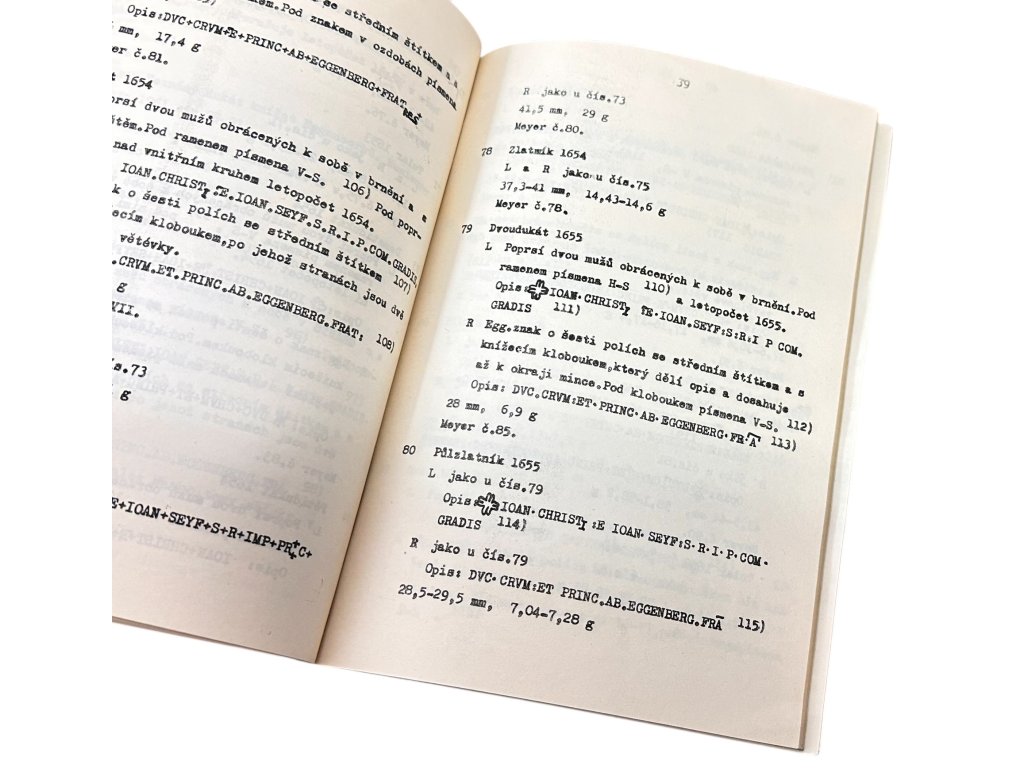 se středním štítkem a s
.Pod znakem v ozdobách písmena
Opis:DVC+CRVM+E+PRINC+AB+EGGENBERG+FRAT
mm, 17,4 g
č.81.
1654
dvou mužů obrácených k sobě v brnění a s
.Pod ramenem písmena V-S. 106) Pod popr-
nad vnitřním kruhem letopočet 1654.
IOAN.CHRIST E.IOAN.SEYF.S.R.I.P.COM.GRADIS.
o šesti polích se středním štítkem 107)
kloboukem,po jehož stranách jsou dvě
větévky.
.CRVM.ET.PRINC.AB.EGGENBERG.FRAT: 108)
g
VII.
čís.73
g
E+IOAN+SEYF+S+R+IMP+PR C+
39
R jako u čís.73
41,5 mm, 29 g
Meyer č.80.
78 Zlatník 1654
L a R jako u čís.75
37,3-41 mm, 14,43-14,6 g
Meyer č.78.
79 Dvoudukát 1655
L Poprsí dvou mužů obrácených k sobě v brnění.Pod
ramenem písmena H-S 110) a letopočet 1655.
Opis: IOAN·CHRISTI E.IOAN.SEYF:S:R:I P COM.
GRADIS 111)
R Egg.znak o šesti polích se středním štítkem a s
knížecím kloboukem,který dělí opis a dosahuje
až k okraji mince.Pod kloboukem písmena V-S. 112)
Opis: DVC.CRVM:ET·PRINC·AB·EGGENBERG·FR·A 113)
28 mm, 6,9 g
Meyer č.85.
80 Půlzlatník 1655
L jako u čís.79
Opis: IOAN·CHRISTI :E IOAN· SEYF:S·R·I·P·COM·
GRADIS 114)
R jako u čís.79
Opis: DVC·CRVM:ET PRINC.AB.EGGENBERG.FRĀ 115)
28,5-29,5 mm, 7,04-7,28 g